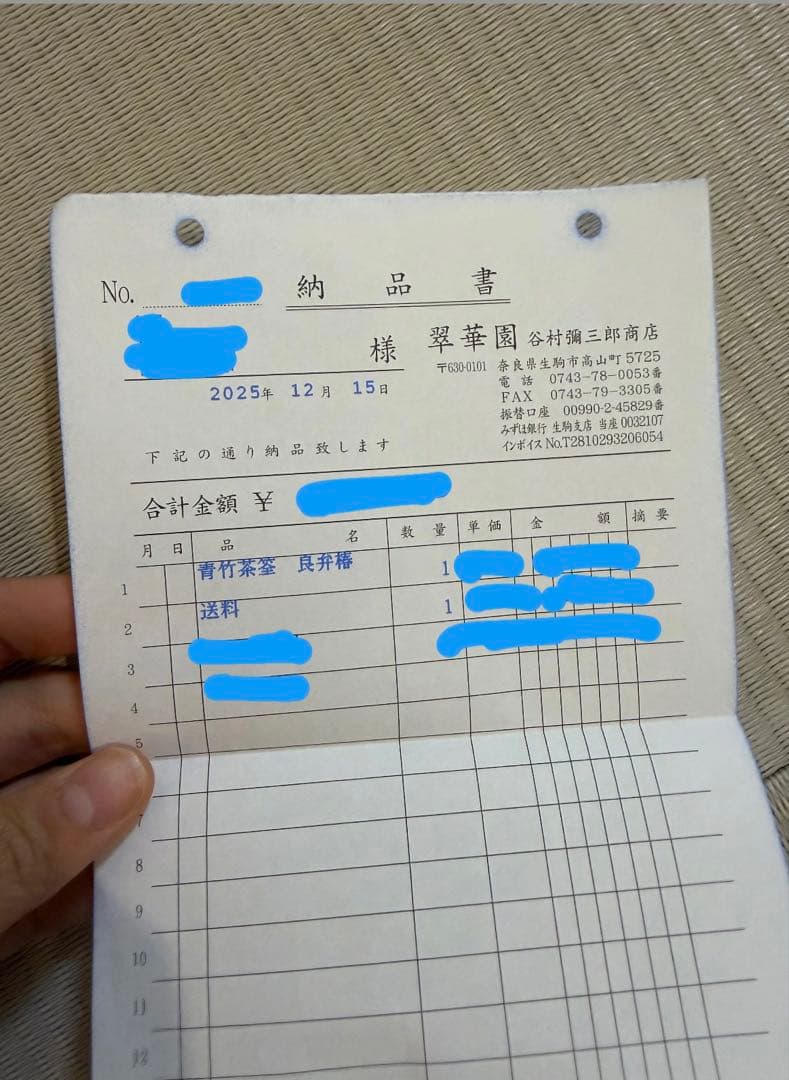 No.
納品書
様
翠華園 谷村彌三郎商店
〒630-0101 奈良県生駒市高山町5725
電話 0743-78-0053番
FAX 0743-79-3305番
振替口座 00990-2-45829番
みずほ銀行 生駒支店 当座0032107
インボイスNo.T2810293206054
2025年 12月 15日
下記の通り納品致します
合計金額 ¥
月 日 品 名 数 量 単価 金 額 摘要
1 青竹茶筌 良弁椿 1
2 送料 1
3
4
5
7
8
9
10
11
12